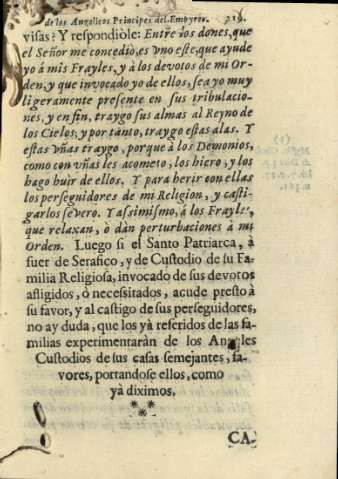 de los Angelicos Principes del Empyreo. 219.
visas? Y respondiòle: Entre los dones, que
el Señor me concediò, es vno este, que ayude
yo á mis Frayles, y à los devotos de mi Or-
den, y que invocado yo de ellos, sea yo muy
ligeramente presente en sus tribulacio-
nes, y en fin, traygo sus almas al Reyno de
los Cielos; y por tanto, traygo estas alas. Y
estas vñas traygo, porque à los Demonios,
como con vñas les acometo, los hiero, y los
hago huir de ellos. Y para herir con ellas
los perseguidores de mi Religion, y casti-
garlos severo. Y assimismo, á los Frayles,
que relaxan, ò dàn perturbaciones à mi
Orden. Luego si el Santo Patriarca, à
fuer de Serafico, y de Custodio de su Fa-
milia Religiosa, invocado de sus devotos
afligidos, ò necessitados, acude presto à
su favor, y al castigo de sus perseguidores,
no ay duda, que los yà referidos de las fa-
milias experimentaràn de los Angeles
Custodios de sus casas semejantes, fa-
vores, portandose ellos, como
yà diximos.
CA-